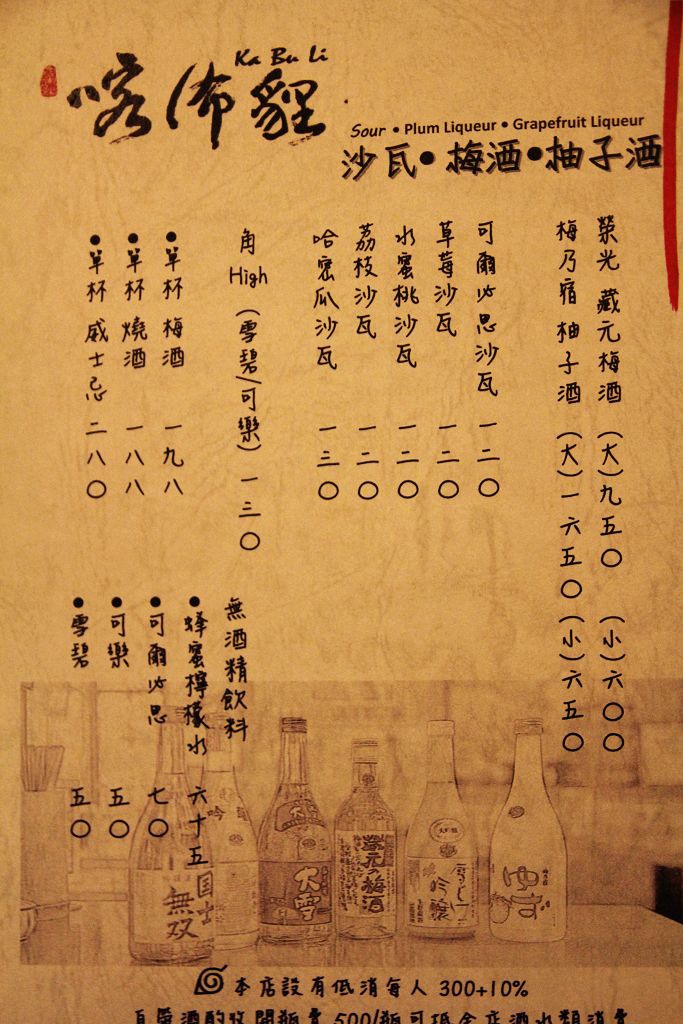 Ka Bu Li
喀佈貍
Sour • Plum Liqueur • Grapefruit Liqueur
沙瓦•梅酒•柚子酒
榮光 藏元梅酒 (大)九五〇 (小)六〇〇
梅乃宿 柚子酒 (大)一六五〇 (小)六五〇
可爾必思沙瓦 一二〇
草莓沙瓦 一二〇
水蜜桃沙瓦 一二〇
荔枝沙瓦 一二〇
哈密瓜沙瓦 一三〇
角High (雪碧/可樂) 一三〇
•單杯 梅酒 一九八
•單杯 燒酒 一八八
•單杯 威士忌 二八〇
無酒精飲料
•蜂蜜檸檬水 六十五
•可爾必思 七〇
•可樂 五〇
•雪碧 五〇
国士
無双
吟
大雪
蔵元の梅酒
吟醸
ゆず
本店設有低消每人 300+10%
自帶酒酌收開瓶費 500/瓶可抵全店酒水類消費